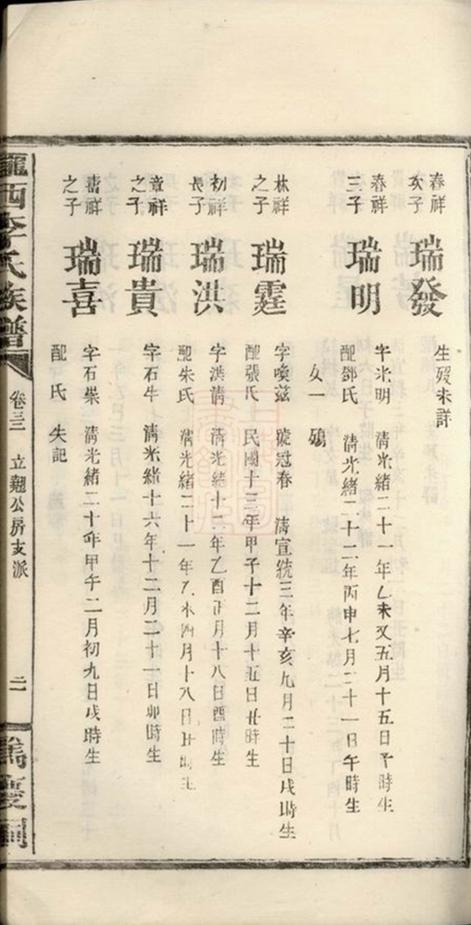 春祥
次子
瑞發
生歿未詳
春祥
三子
瑞明
字光明 清光緒二十一年乙未又五月十五日子時生
配鄧氏 清光緒二十二年丙申七月二十一日午時生
女一 殤
林祥
之子
瑞霆
字喚茲 號冠春 清宣統三年辛亥九月二十日戌時生
配張氏 民國十三年甲子十二月十五日丑時生
初祥
長子
瑞洪
字洪清 清光緒十一年乙酉正月十八日酉時生
配朱氏 清光緒二十一年乙未四月十八日丑時生
章祥
之子
瑞貴
字石牛 清光緒十六年十二月二十一日卯時生
之子
瑞喜
字石崇 清光緒二十年甲午二月初九日戌時生
配氏 失記
隴西李氏族譜
卷三 立翹公房支派 二